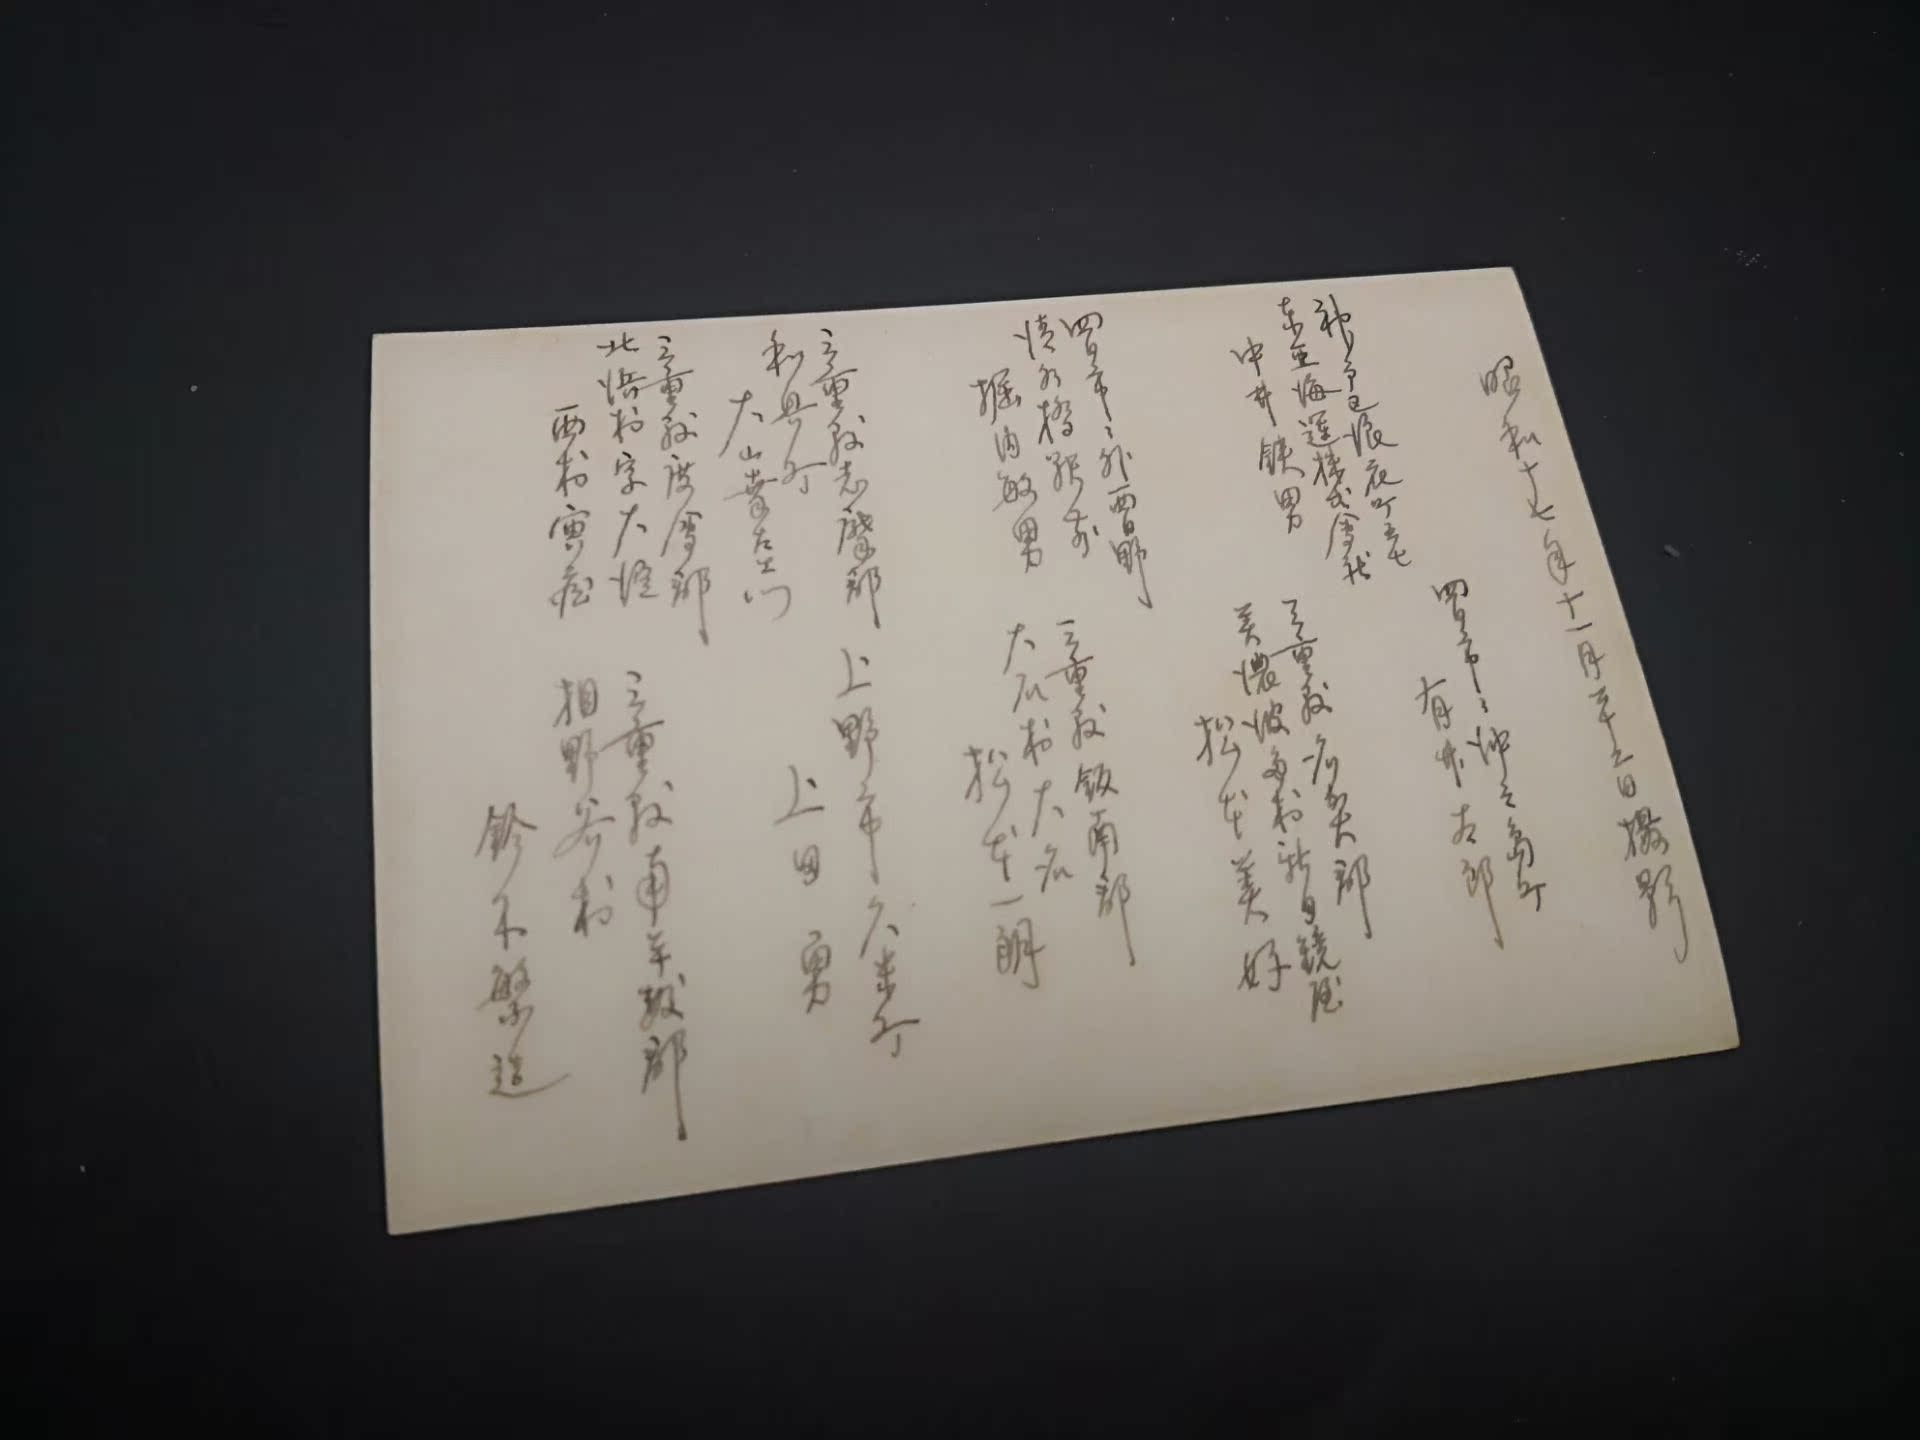 昭和十七年十一月二十三日撮影
四日市市沖之島町
有井太郎
神戸区浪花町五七
東亜海運株式会社
中井鉄男
三重県名賀郡
美濃波多村新田鏡屋
松本美好
四日市市外西日野
橋駅前
堀内敏男
三重県飯南郡
大石村大石
松本一朗
三重県志摩郡
和具町
大山幸左エ門
上野市久米町
上田勇
三重県度会郡
北浜村字大
西村
三重県南牟婁郡
相野谷村
鈴木繁造